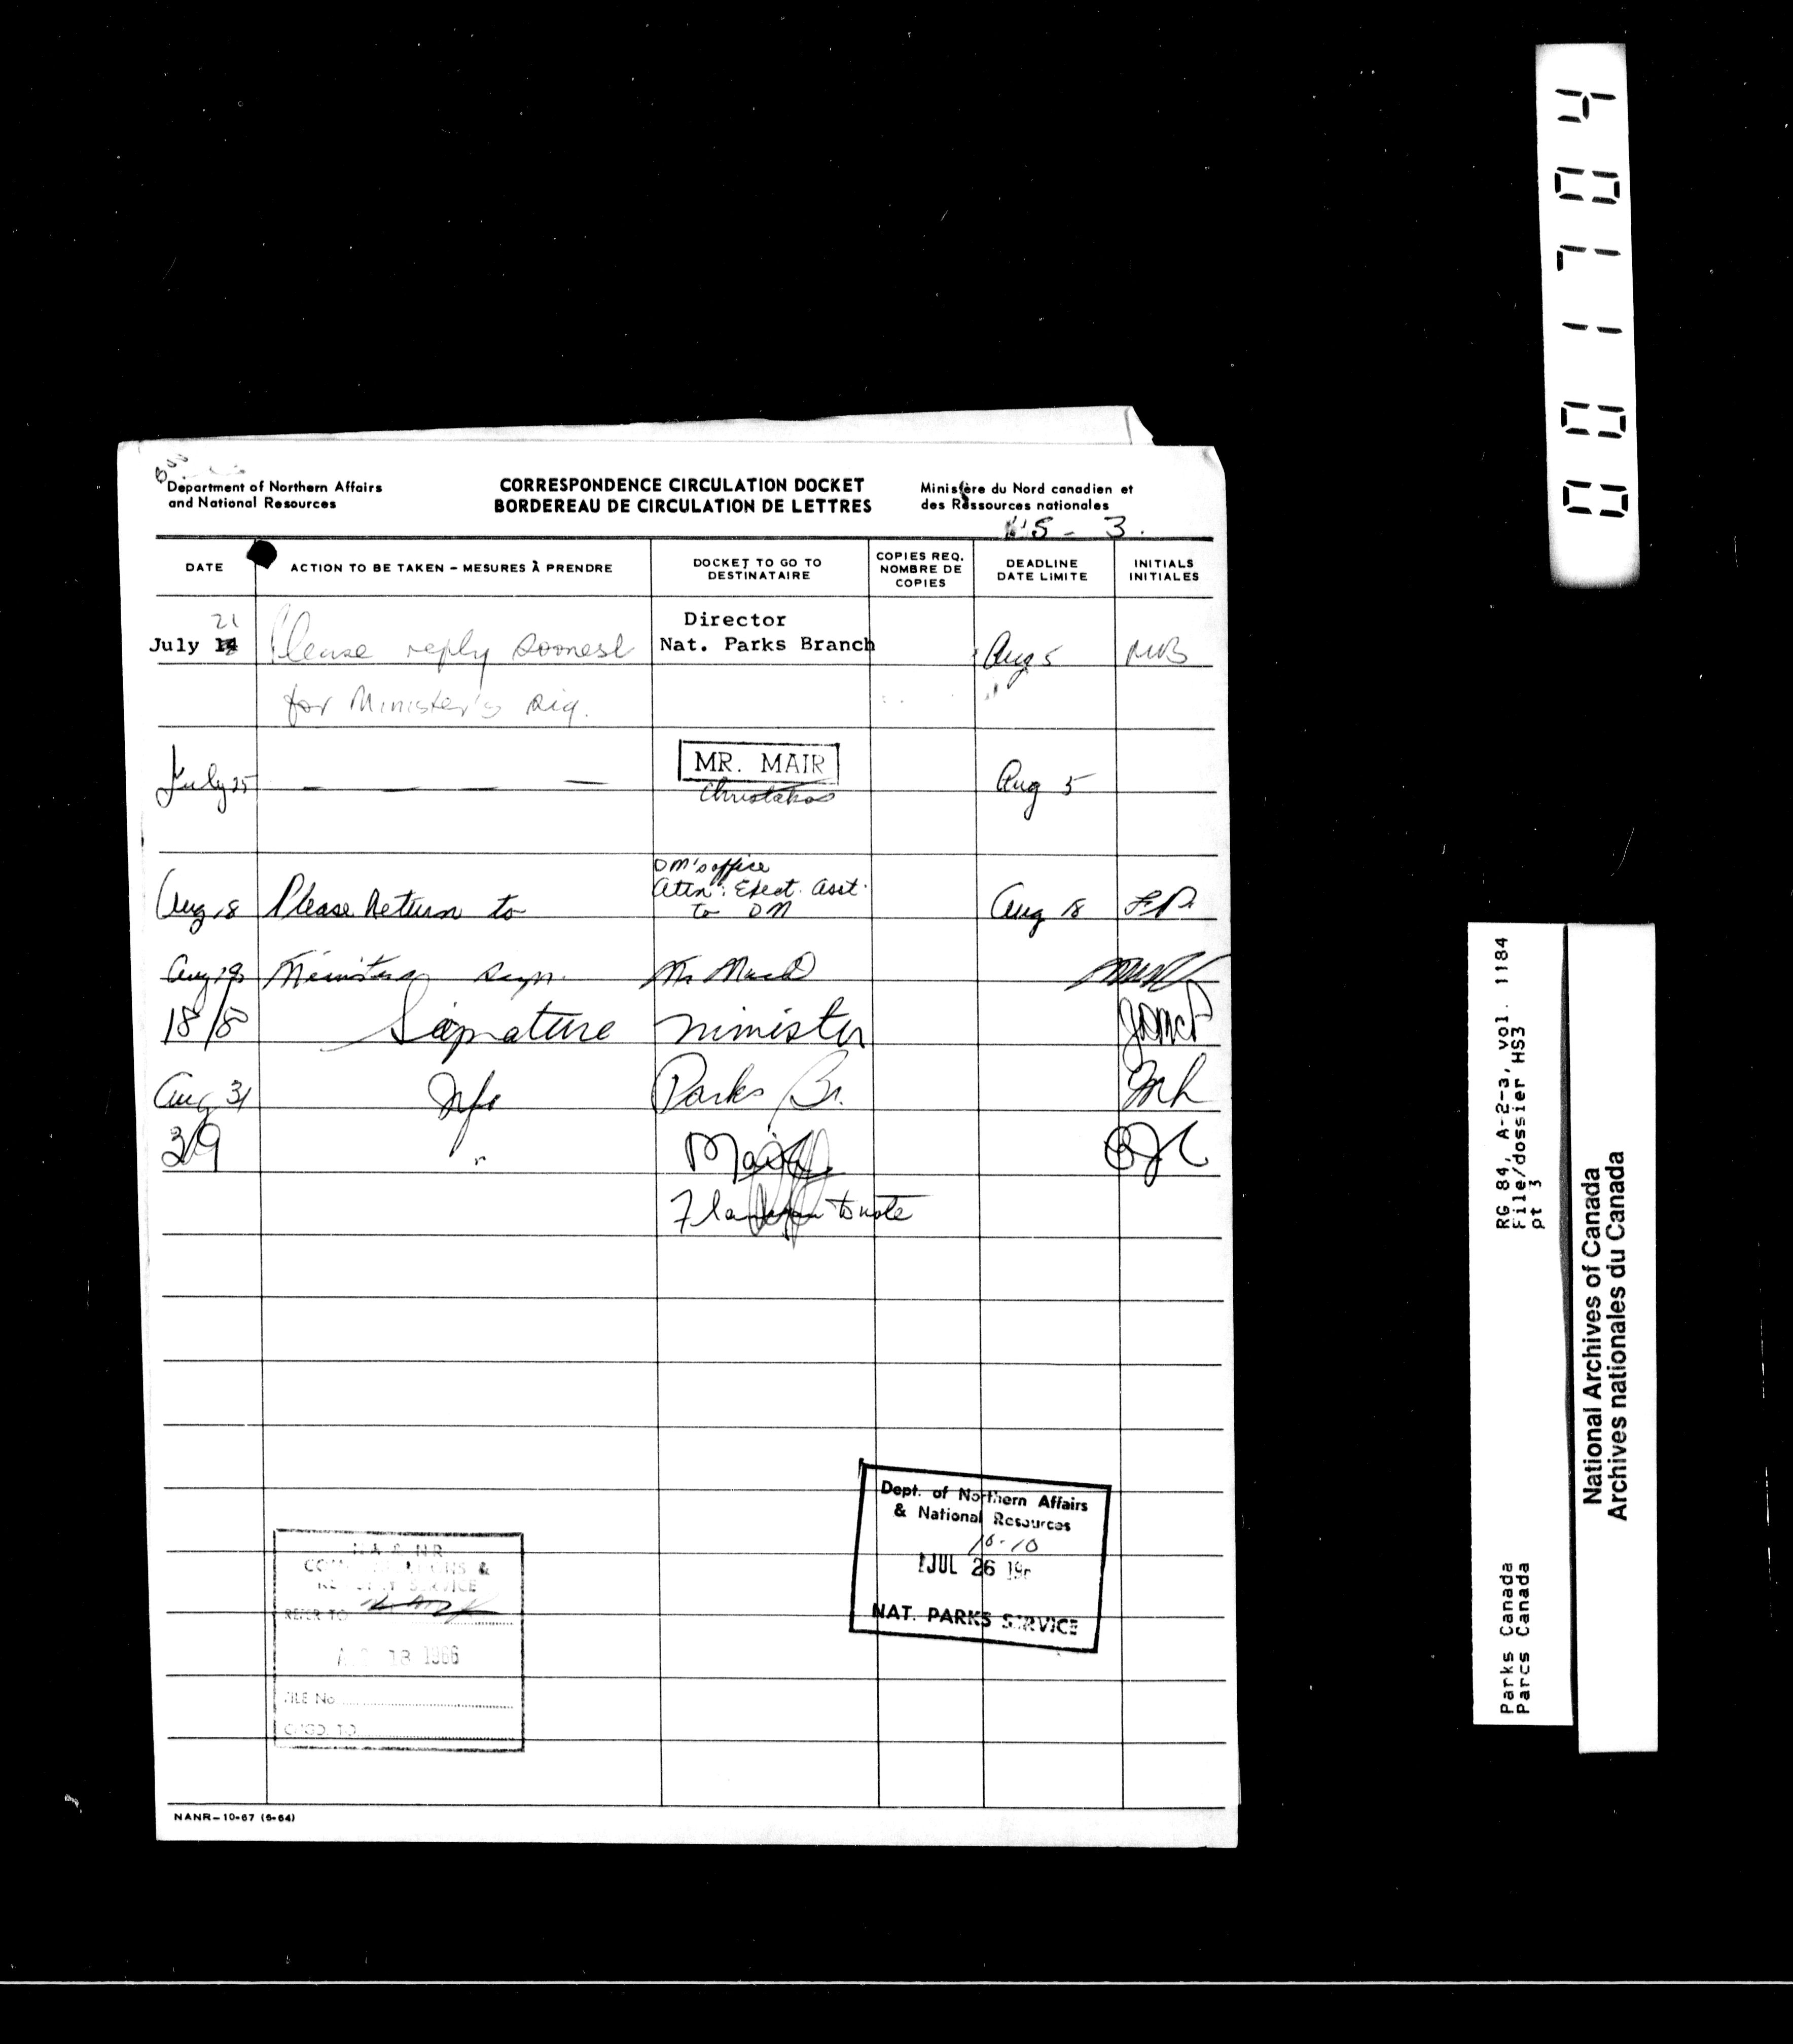 Department of Northern Affairs
and National Resources
CORRESPONDENCE CIRCULATION DOCKET
BORDEREAU DE CIRCULATION DE LETTRES
Ministère du Nord canadien et
des Ressources nationales
HS - 3.
DATE
ACTION TO BE TAKEN – MESURES À PRENDRE
DOCKET TO GO TO
DESTINATAIRE
COPIES REQ.
NOMBRE DE
COPIES
DEADLINE
DATE LIMITE
INITIALS
INITIALES
July 21
Please reply soonest
Director
Nat. Parks Branch
Aug 5
for Minister's sig.
July 25
MR. MAIR
Christakos
Aug 5
Aug 18
Please Return to
DM's office
Attn: Exect. Asst.
to DM
Aug 18
Ministers sign.
18/8
Signature
Minister
Aug 31
Parks Br.
3/9
Mair
Flanagan to note
Dept. of Northern Affairs
& National Resources
10-10
JUL 26 19
NAT. PARKS SERVICE
N A & N R
REFER TO
18 1966
FILE No.
CHGD. TO
NANR–10-67 (6-64)
RG 84, A-2-3, vol. 1184
File/dossier HS3
pt 3
Parks Canada
Parcs Canada
National Archives of Canada
Archives nationales du Canada